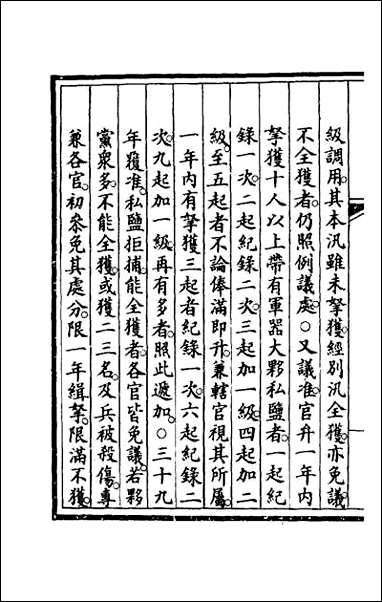 級調用。其本汛雖未拏獲。經别汛全獲。亦免議。
不全獲者。仍照例議處。○又議准。官弁一年内
拏獲十人以上帶有軍器大夥私鹽者。一起紀
錄一次。二起紀錄二次。三起加一級。四起加二
級。至五起者不論俸滿即升。兼轄官視其所屬。
一年内有拏獲三起者紀錄一次。六起紀錄二
次。九起加一級。再有多者。照此遞加。○三十九
年覆准。私鹽拒捕。能全獲者。各官皆免議。若夥
黨衆多。不能全獲。或獲二三名。及兵被殺傷。專
兼各官。初參免其處分。限一年緝拏。限滿不獲。